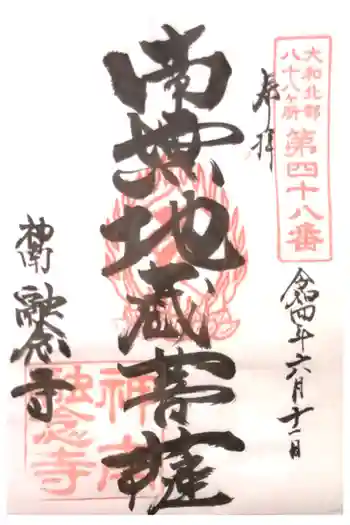 大和北部
八十八ヶ所
第四十八番
奉拝
令和四年六月十二日
南無地蔵菩薩
神南 融念寺
神南
融念寺